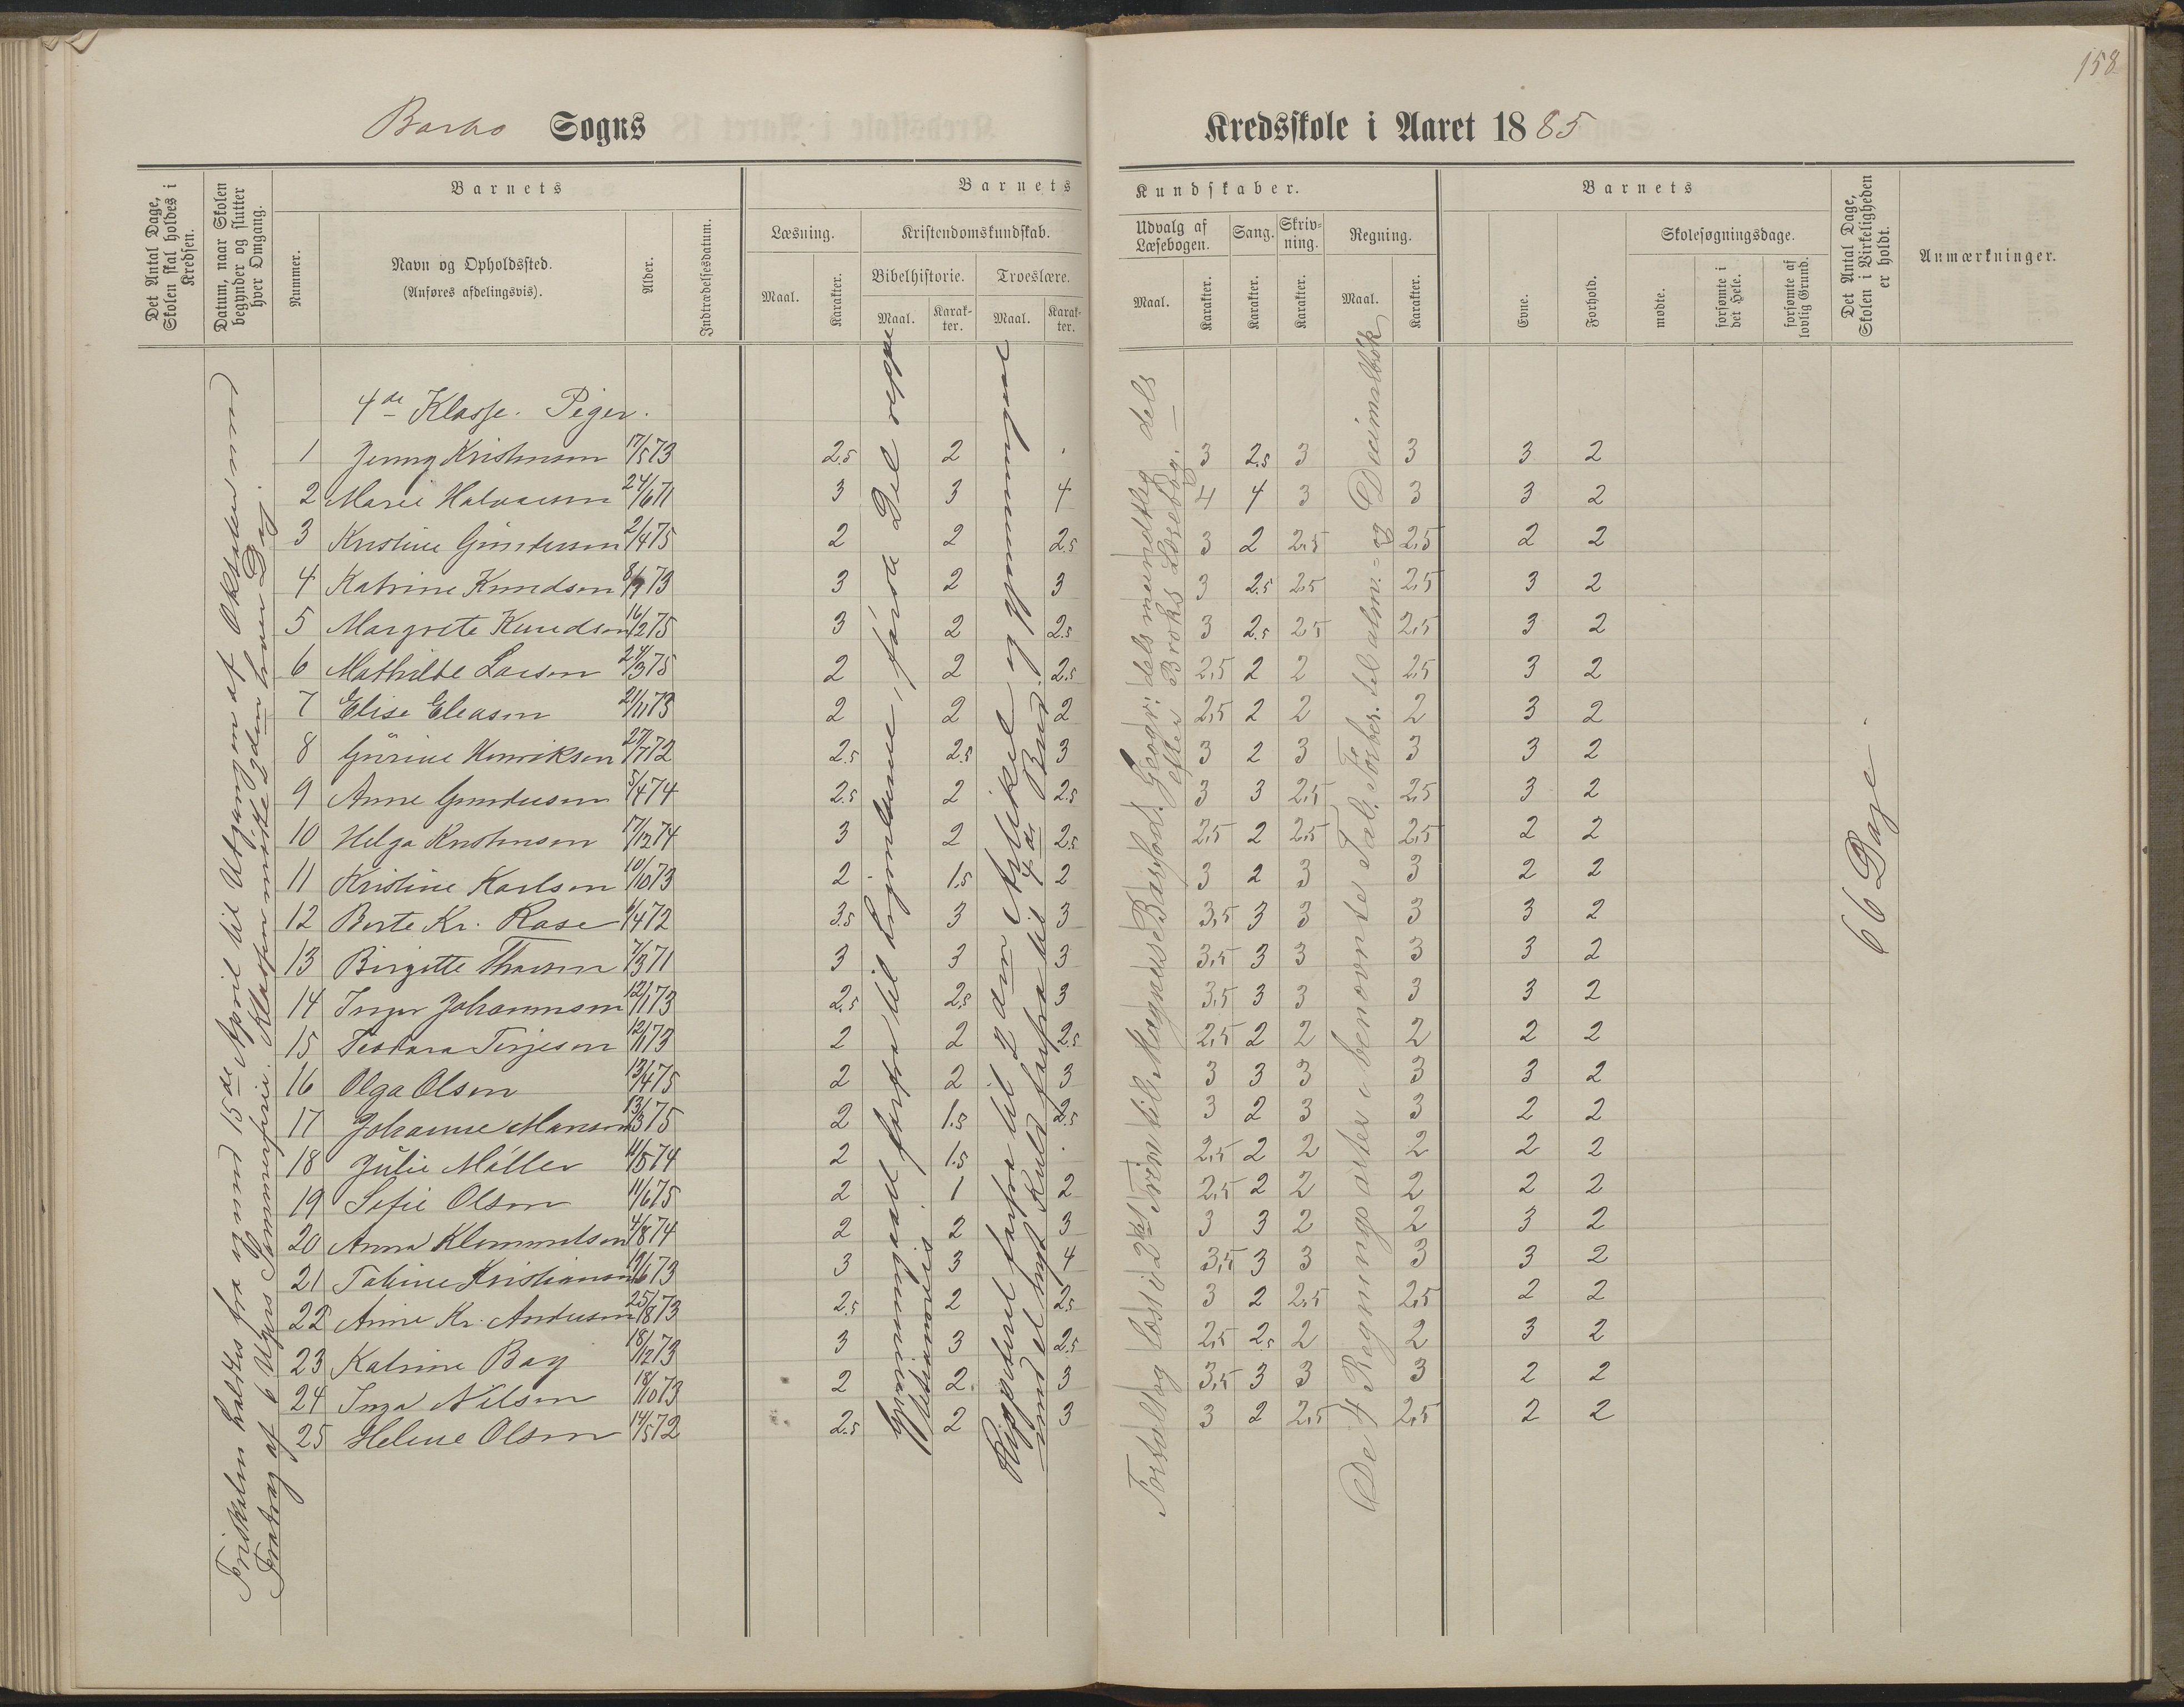 158
Barbo Sogns Kredsskole i Aaret 1885
Det Antal Dage, Skolen skal holdes i Kredsen.
Datum, naar Skolen begynder og slutter hver Omgang.
Barnets
Nummer.
Navn og Opholdssted.
(Anføres afdelingsvis).
Alder.
Indtrædelsesdatum.
Barnets Kundskaber.
Læsning.
Maal.
Karakter.
Kristendomskundskab.
Bibelhistorie.
Maal.
Karakter.
Troeslære.
Maal.
Karakter.
Udvalg af Læsebogen.
Maal.
Karakter.
Sang.
Karakter.
Skrivning.
Karakter.
Regning.
Maal.
Karakter.
Barnets
Evne.
Forhold.
Skolesøgningsdage.
mødte.
forsømte i det Hele.
forsømte af lovlig Grund.
Det Antal Dage, Skolen i Virkeligheden er holdt.
Anmærkninger.
4de Klasse. Piger.
1 Jenny Kristensen 17/5 73 2.5 2 . 3 2.5 3 3 3 2
2 Marie Halvorsen 24/6 71 3 3 4 4 4 3 3 3 2
3 Kristine Gundersen 2/4 75 2 2 2.5 3 2 2,5 2,5 2 2
4 Katrine Knudsen 8/9 73 3 2 3 3 2.5 2,5 2,5 3 2
5 Margrete Knudsen 16/2 75 3 2 2.5 3 2.5 2,5 2,5 3 2
6 Mathilde Larsen 24/3 75 2 2 2.5 2,5 2 2 2,5 3 2
7 Elise Eleasen 21/11 73 2 2 2 2,5 2 2 2 3 2
8 Gurine Henriksen 27/7 72 2.5 2.5 3 3 2 3 3 3 2
9 Anne Gundersen 5/4 74 2.5 2 2.5 3 3 2,5 2,5 3 2
10 Helga Kristensen 17/12 74 3 2 2.5 2,5 2 2,5 2,5 2 2
11 Kristine Karlsen 10/10 73 2 1.5 2 3 2 3 3 2 2
12 Berte Kr. Rase /4 72 3.5 3 3 3,5 3 3 3 3 2
13 Birgitte 7/3 71 3 3 3 3,5 3 3 3 3 2
14 Inger Johannesen 12/1 73 2.5 2.5 3 3,5 3 3 3 3 2
15 Teodora Terjesen 12/1 73 2 2 2.5 2,5 2 2 2 2 2
16 Olga Olsen 13/4 75 2 2 3 3 3 3 3 3 2
17 Johanne Hansen 13/3 75 2 1.5 2.5 3 2 3 3 2 2
18 Julie Møller 11/5 74 2 1.5 . 2,5 2 2 2 2 2
19 Sofie Olsen 11/6 75 2 1 2 2,5 2 2 2 2 2
20 Anna Klemmetsen 4/8 74 2 2 3 3 3 2 2 3 2
21 Tomine Kristiansen 19/6 73 3 3 4 3,5 3 3 3 3 2
22 Anne Kr. Andersen 25/8 73 2.5 2 2.5 3 2 2,5 2,5 2 2
23 Katrine Bay 18/12 73 3 3 2.5 2,5 2.5 2 2 3 2
24 Inga Nilsen 18/10 73 2 2. 3 3,5 3 3 3 2 2
25 Helene Olsen 14/5 72 2.5 2 3 3 2 2,5 2,5 2 2
holdtes fra og med 15de April til Udgangen af Oktober med
Fradrag af 6 Ugers Sommerferie. Klassen mødte hver Dag.
Gjennemgaaet forfra til Lignelserne, første Del
Repeteret forfra til 2den Artikel og gjennemgaaet
med et nyt Kuld forfra til 4de Bud.
Fortalt og læst i 2det Trin til Magnus Barfod. Geogr. dels mundtlig dels
efter Broks Læsebog.
De 4 Regningsarter i benævnte Tal. Forber. til alm. - og Decimalbrøk
66 Dage.